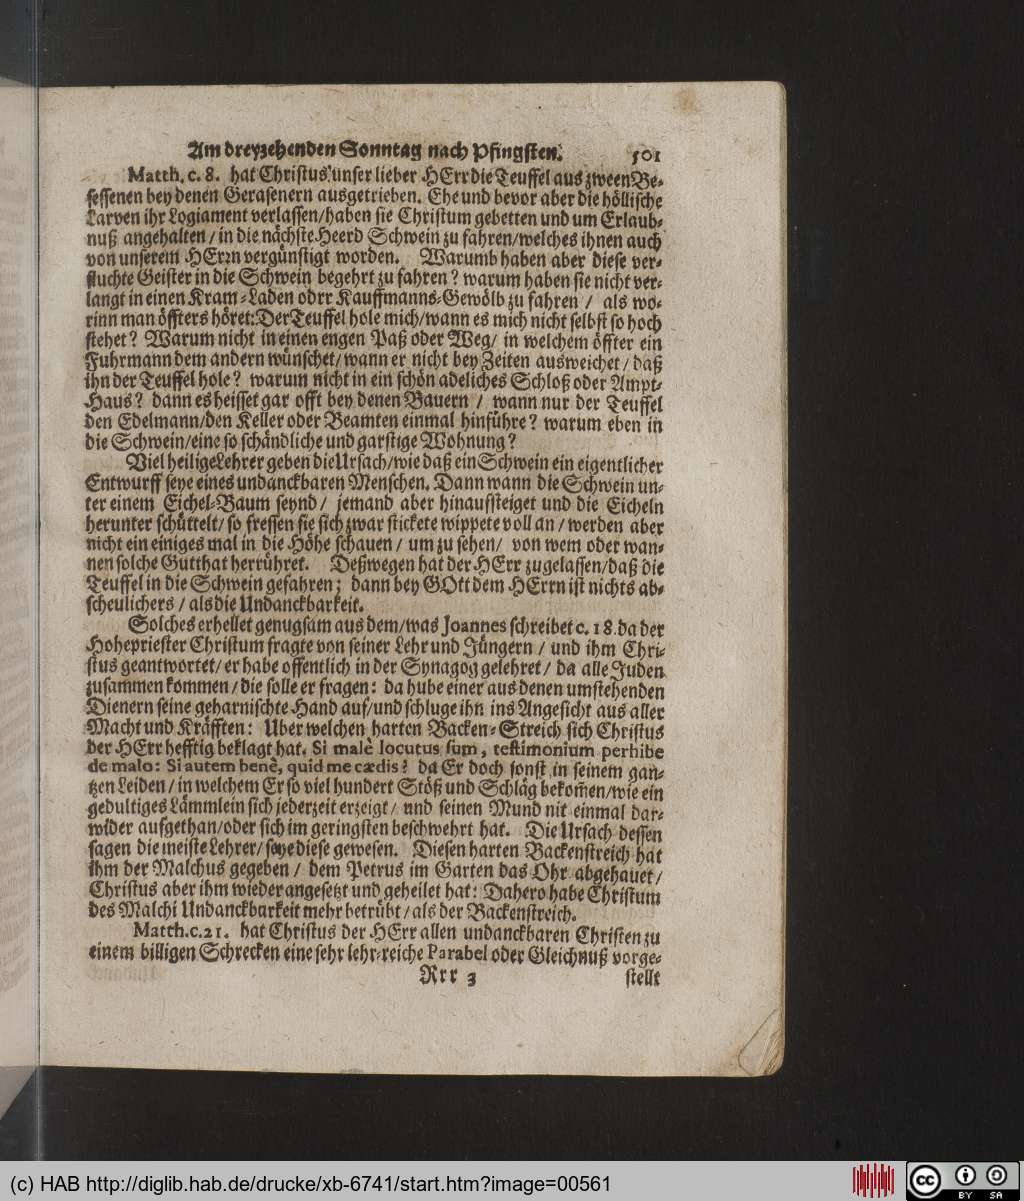 Am dreyzehenden Sonntag nach Pfingsten. 501
Matth. c. 8. hat Christus unser lieber HErr die Teuffel aus zween Be-
sessenen bey denen Gerasenern ausgetrieben. Ehe und bevor aber die höllische
Larven ihr Logiament verlassen/haben sie Christum gebetten und um Erlaub-
nuß angehalten / in die nächste Heerd Schwein zu fahren/welches ihnen auch
von unserem HErrn vergünstigt worden. Warumb haben aber diese ver-
fluchte Geister in die Schwein begehrt zu fahren? warum haben sie nicht ver-
langt in einen Kram-Laden odrr Kauffmanns-Gewölb zu fahren / als wo-
rinn man öffters höret: Der Teuffel hole mich/wann es mich nicht selbst so hoch
stehet? Warum nicht in einen engen Paß oder Weg/ in welchem öffter ein
Fuhrmann dem andern wünschet/wann er nicht bey Zeiten ausweichet/ daß
ihn der Teuffel hole? warum nicht in ein schön adeliches Schloß oder Ampt-
Haus? dann es heisset gar offt bey denen Bauern / wann nur der Teuffel
den Edelmann/den Keller oder Beamten einmal hinführe? warum eben in
die Schwein/eine so schändliche und garstige Wohnung?
Viel heilige Lehrer geben die Ursach/wie daß ein Schwein ein eigentlicher
Entwurff seye eines undanckbaren Menschen. Dann wann die Schwein un-
ter einem Eichel-Baum seynd/ jemand aber hinaufsteiget und die Eicheln
herunter schüttelt/ so fressen sie sich zwar stickete wippete voll an / werden aber
nicht ein einiges mal in die Höhe schauen / um zu sehen/ von wem oder wan-
nen solche Gutthat herrühret. Deßwegen hat der HErr zugelassen/daß die
Teuffel in die Schwein gefahren; dann bey GOtt dem HErrn ist nichts ab-
scheulichers / als die Undanckbarkeit.
Solches erhellet genugsam aus dem/was Joannes schreibet c. 18. da der
Hohepriester Christum fragte von seiner Lehr und Jüngern / und ihm Chri-
stus geantwortet/ er habe offentlich in der Synagog gelehret/ da alle Juden
zusammen kommen / die solle er fragen: da hube einer aus denen umstehenden
Dienern seine geharnischte Hand auf/und schluge ihn ins Angesicht aus aller
Macht und Kräfften: Uber welchen harten Backen-Streich sich Christus
der HErr hefftig beklagt hat. Si malè locutus sum, testimonium perhibe
de malo: Si autem benè, quid me cædis? da Er doch sonst in seinem gan-
tzen Leiden / in welchem Er so viel hundert Stöß und Schläg bekom̃en/wie ein
gedultiges Lämmlein sich jederzeit erzeigt/ und seinen Mund nit einmal dar-
wider aufgethan/oder sich im geringsten beschwehrt hat. Die Ursach dessen
sagen die meiste Lehrer/ seye diese gewesen. Diesen harten Backenstreich hat
ihm der Malchus gegeben / dem Petrus im Garten das Ohr abgehauet/
Christus aber ihm wieder angesetzt und geheilet hat: Dahero habe Christum
des Malchi Undanckbarkeit mehr betrübt / als der Backenstreich.
Matth. c. 21. hat Christus der HErr allen undanckbaren Christen zu
einem billigen Schrecken eine sehr lehr-reiche Parabel oder Gleichnuß vorge-
Rrr 3 stellt
(c) HAB http://diglib.hab.de/drucke/xb-6741/start.htm?image=00561
cc BY SA